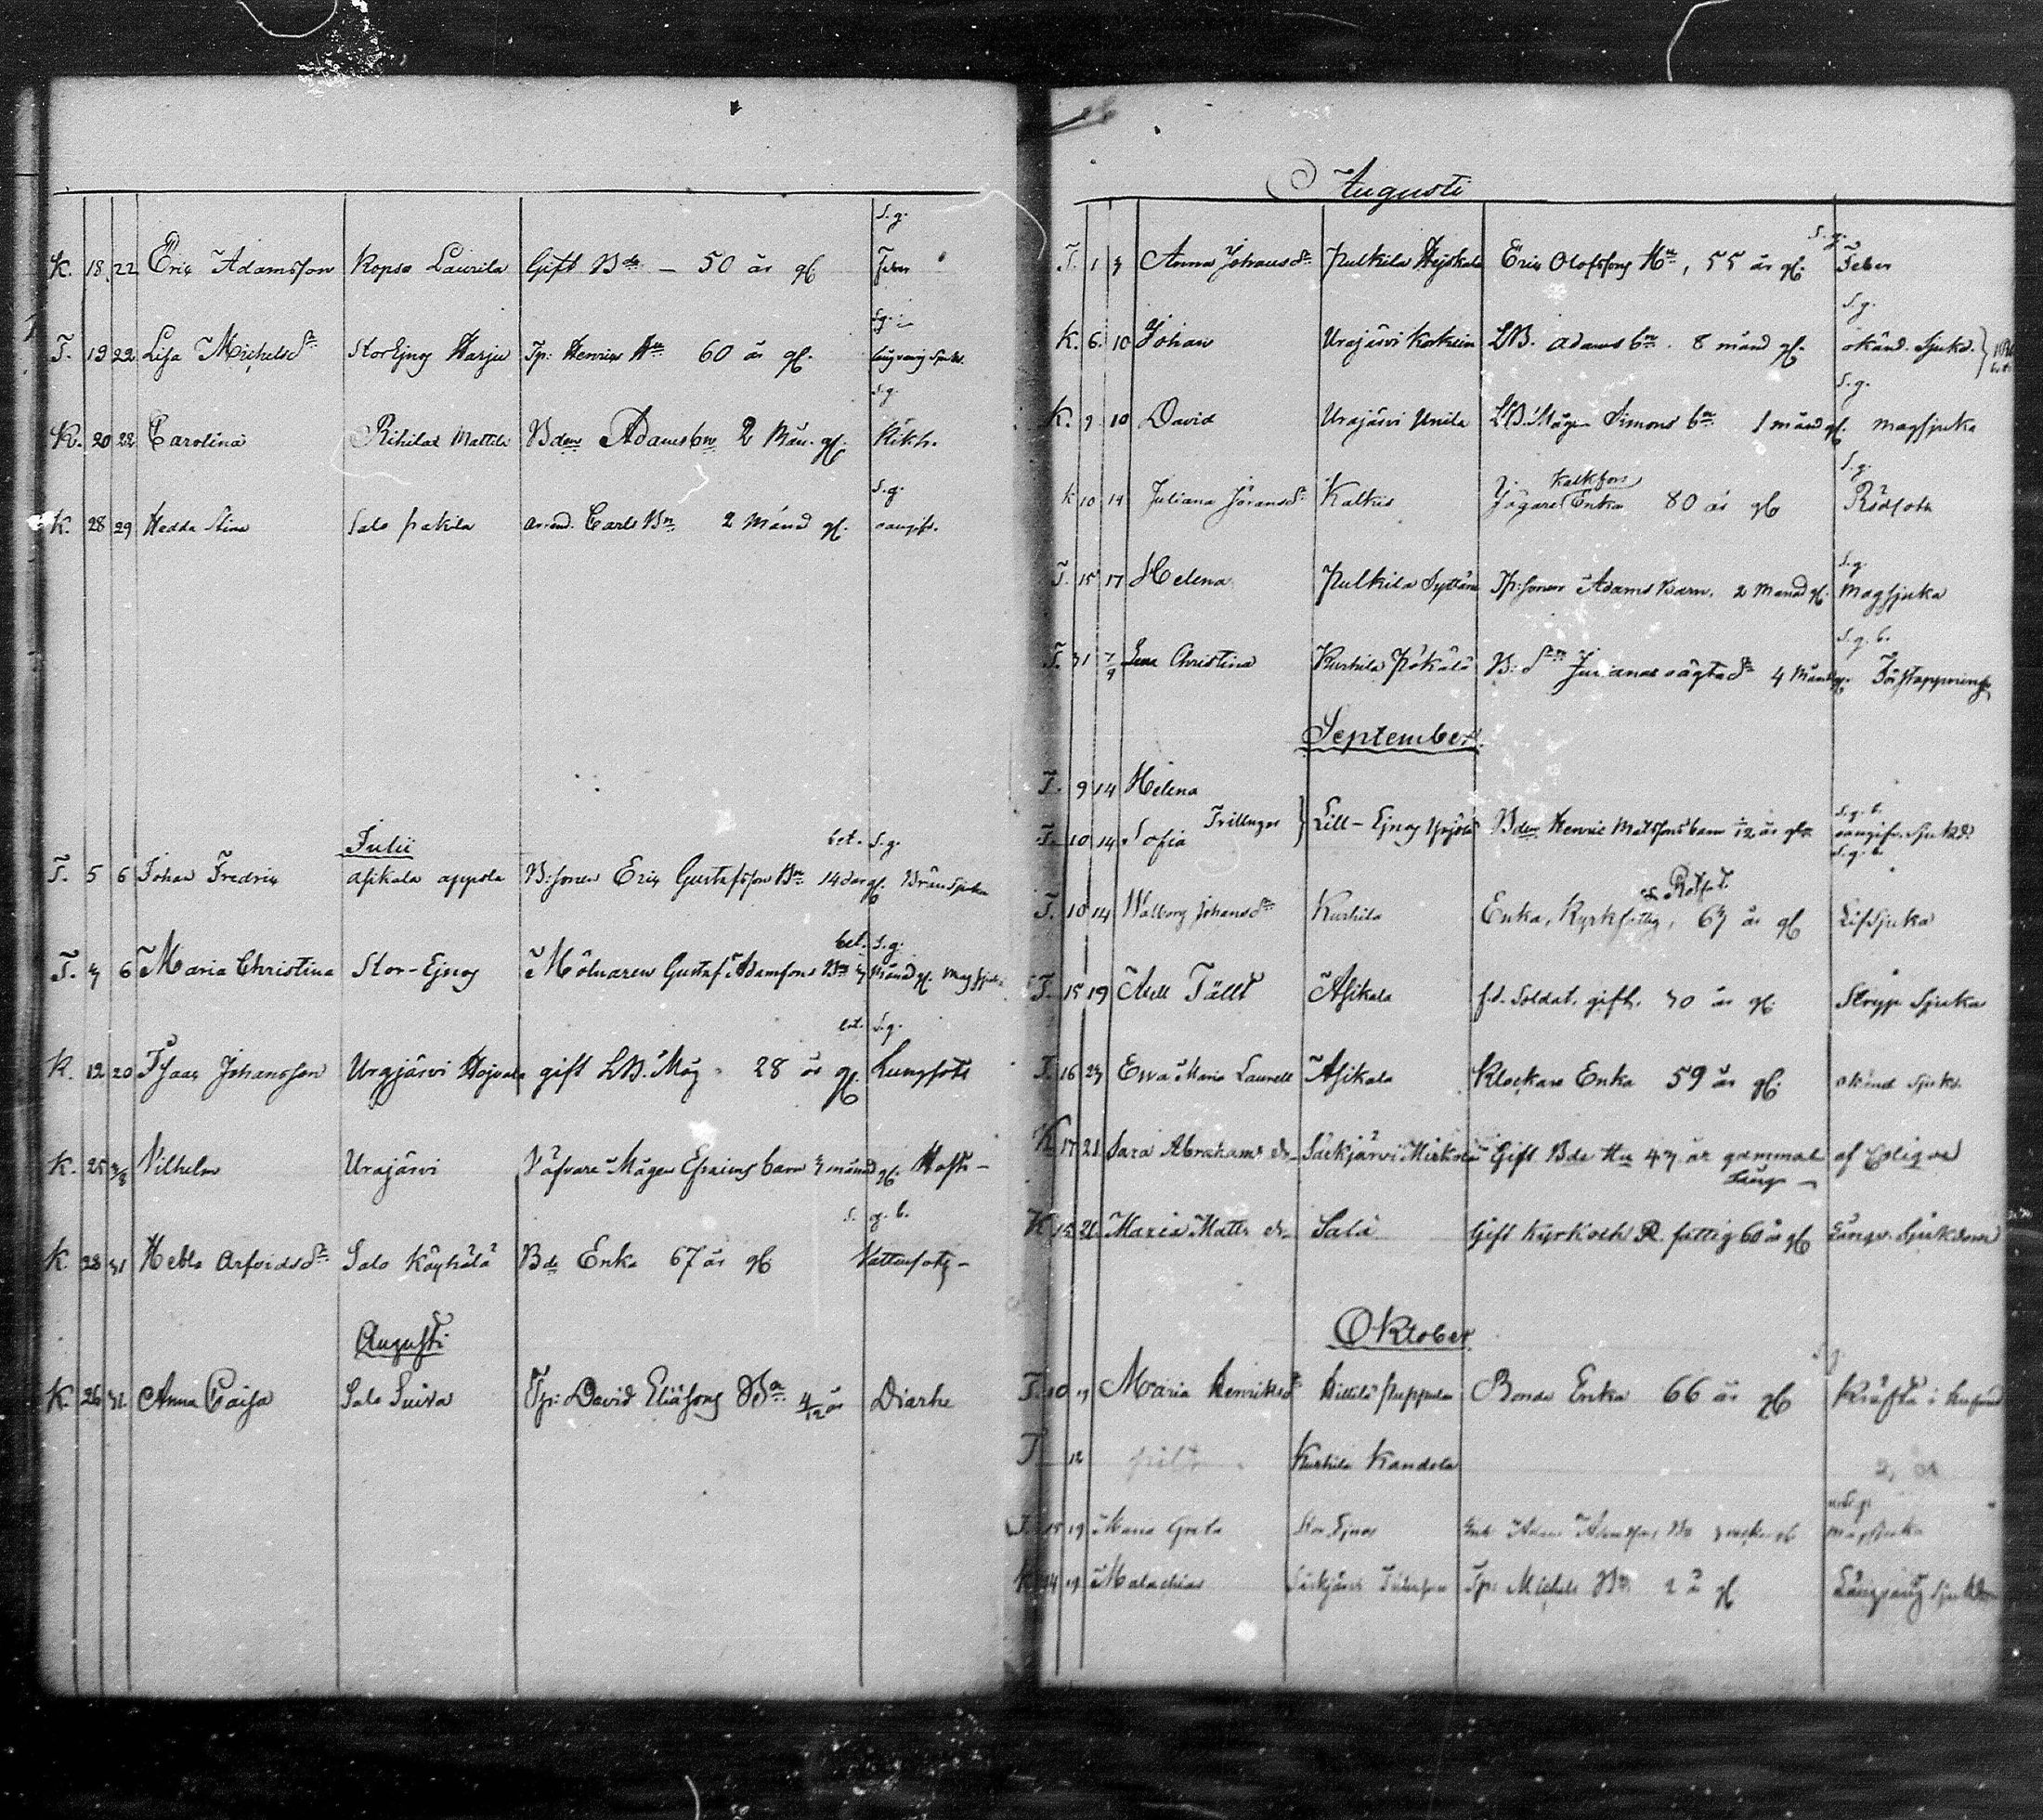 s. g.
K. 18 22 Eric Adamsson Kopso Laurila Gift Bde – 50 år gl.
S. g.
T. 19 22 Lisa Michelsdr Stor Ejnoz Harju Tp: Henrics Hu 60 år gl. långvarig sjukd.
S. g.
K. 20 22 Carolina Rihilax Mattila Bden Adams bn 2 Mån. gl. Kikh.
S. g.
K. 28 29 Hedda Stina Salo pakila arrend. Carls Bn 2 Månad gl. oangift.
Julii
bet. S. g.
T. 5 6 Johan Fredric Asikala appola B:sonen Eric Gustafsson Bn 14 dar gl. Bränsjuka
bet. S. g.
T. 3 6 Maria Christina Stor-Ejnoz Mölnaren Gustaf Adamsons Bn 3 månd gl. Magsjuka
bet. S. g.
K. 12 20 Isaac Johansson Urajärvi Hojvala gift LB. Måg 28 år gl. Lungsot
K. 25 3/8 Vilhelm Urajärvi Väfvare Mågen Efraims barn 3 månad gl. Host –
s. g. b.
K. 28 31 Hebla Arfvidsdr Salo Käyhälä Bde Enka 67 år gl. Vattensot –
Augusti
K. 26 31. Anna Caisa Salo Suira Tp: David Eliäsons Bn 4/12 år Diarhe
Augusti
S. g.
T. 1 3 Anna Johansdr Pulkila Hejskala Eric Olofssons Hu, 55 år gl. Feber
S. g.
K. 6 10 Johan Urajärvi LB. Adams bn. 8 månd gl. okänd. sjukd.
S. g.
K. 9 10 David Urajärvi Unila LB. Mågen Simons bn 1 månd gl. magsjuka
S. g.
Kalkfors
K 10 14 Juliana Jöransdr Kalkis Jägare Enka 80 år gl. Rödsot
S. g.
T. 15 17 Helena Pulkila Tp: sonen Adams Barn. 2 Månad gl. Magsjuka
S. g. b.
T. 31 7/9 Lena Christina Kurhila Pökälä B: dn Julianas oägta dr 4 Månd gl. Förstoppning
September.
T. 9 14 Helena
Trillingar } Lill-Ejnoz Yrjölä Bden Henric Matssons barn 1/12 år gl. S. g. b. oangifv. sjukd.
T. 10 14 Sofia
S. g. b.
T. 10 14 Walborg Johansdr Kurhila Enka, Kyrkfattig, 63 år gl. Lifsjuka
T. 15 19 Abell Fällt Asikala f.d. Soldat, gift. 70 år gl. Stryp Sjuka
T. 16 23 Ewa Maria Laurell Asikala Klockare Enka 59 år gl. okänd sjukd.
K. 17 21 Sara Abrahams dr. Särkjärvi Mickola Gift Bde Hu 43 år gammal af Colique
K 15 21 Maria Matts dr. Salo Gift Kyrk och R. fattig 60 år gl. Långv. Sjukdom
Oktober.
T. 10 Maria Henriksdr Hillilä Puppula Bonde Enka 66 år gl. Kräfta i hufvud
T 12 Kurhila Kandola
T. 15 19 Maria Greta Stor Ejnoz Adam Adamssons Bn 3 veckor gl. magsjuka
K 14 19 Malachias Särkjärvi Tp: Michels Bn 2 år gl. Långvarig Sjukdom